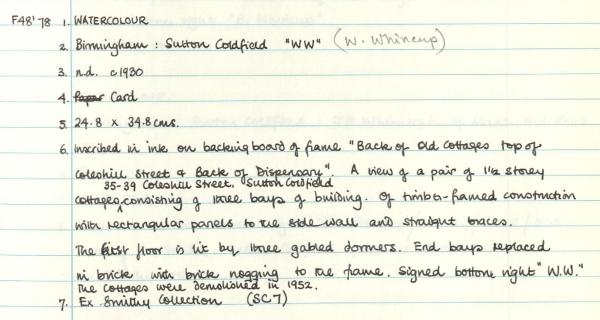 F48'78 1. WATERCOLOUR
2. Birmingham : Sutton Coldfield "WW" (W. Whineup)
3. n.d. c1930
4. Paper Card
5. 24.8 x 34.8 cms.
6. Inscribed in ink on backing board of frame "Back of Old Cottages top of
Coleshill Street & Back of Dispensary". A view of a pair of 1½ storey
35-39 Coleshill Street, Sutton Coldfield
cottages ^ consisting of three bays of building. Of timber-framed construction
with rectangular panels to the side wall and straight braces.
The first floor is lit by three gabled dormers. End bays replaced
in brick with brick nogging to the frame. Signed bottom right "W.W."
The cottages were demolished in 1952.
7. Ex Smithy Collection (SC7)